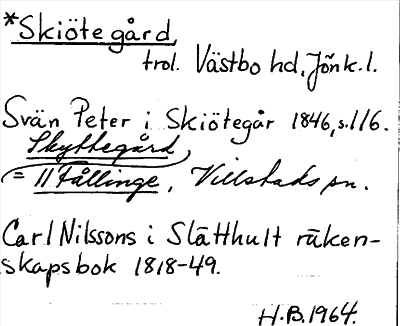 *Skiötegård
trol. Västbo hd, Jönk. l.
Svän Peter i Skiötegår 1846, s. 116.
Skyttegård
= 11 Fållinge, Villstads sn.
Carl Nilssons i Slätthult räken-
skapsbok 1818-49.
H.B. 1964.